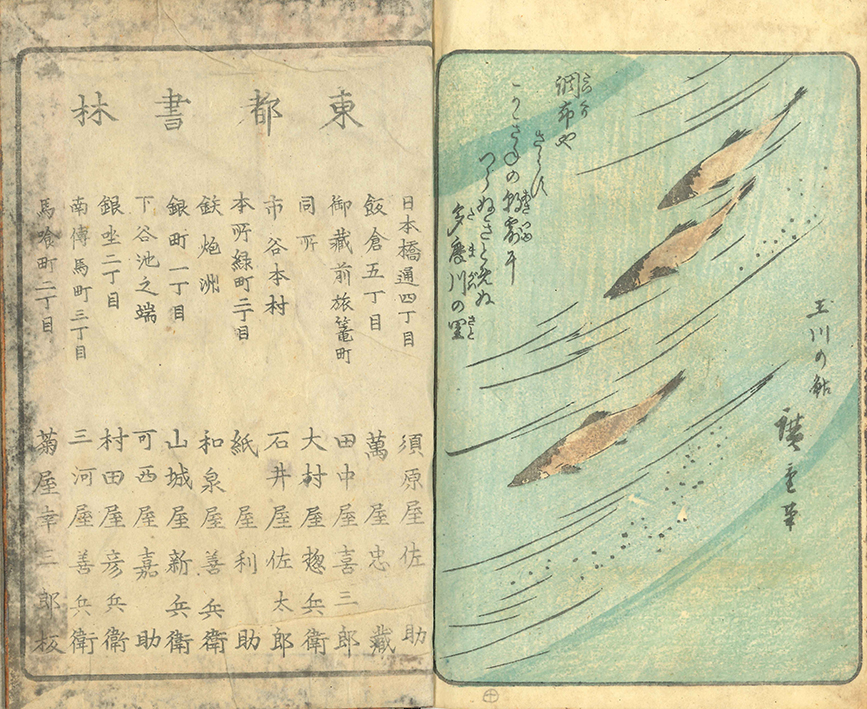 玉川の鮎
廣重筆
調布や
さらす
かきねの朝露を
つらぬきとめぬ
多磨川の里
東都書林
日本橋通四丁目 須原屋佐助
飯倉五丁目 萬屋忠蔵
御蔵前旅篭町 田中屋喜三郎
同所 大村屋惣兵衛
市谷本村 石井屋佐太郎
本所緑町二丁目 紙屋利助
鉄炮洲 和泉屋善兵衛
銀町一丁目 山城屋新兵衛
下谷池之端 可西屋嘉助
銀坐二丁目 村田屋彦兵衛
南傳馬町三丁目 三河屋善兵衛
馬喰町二丁目 菊屋幸三郎板